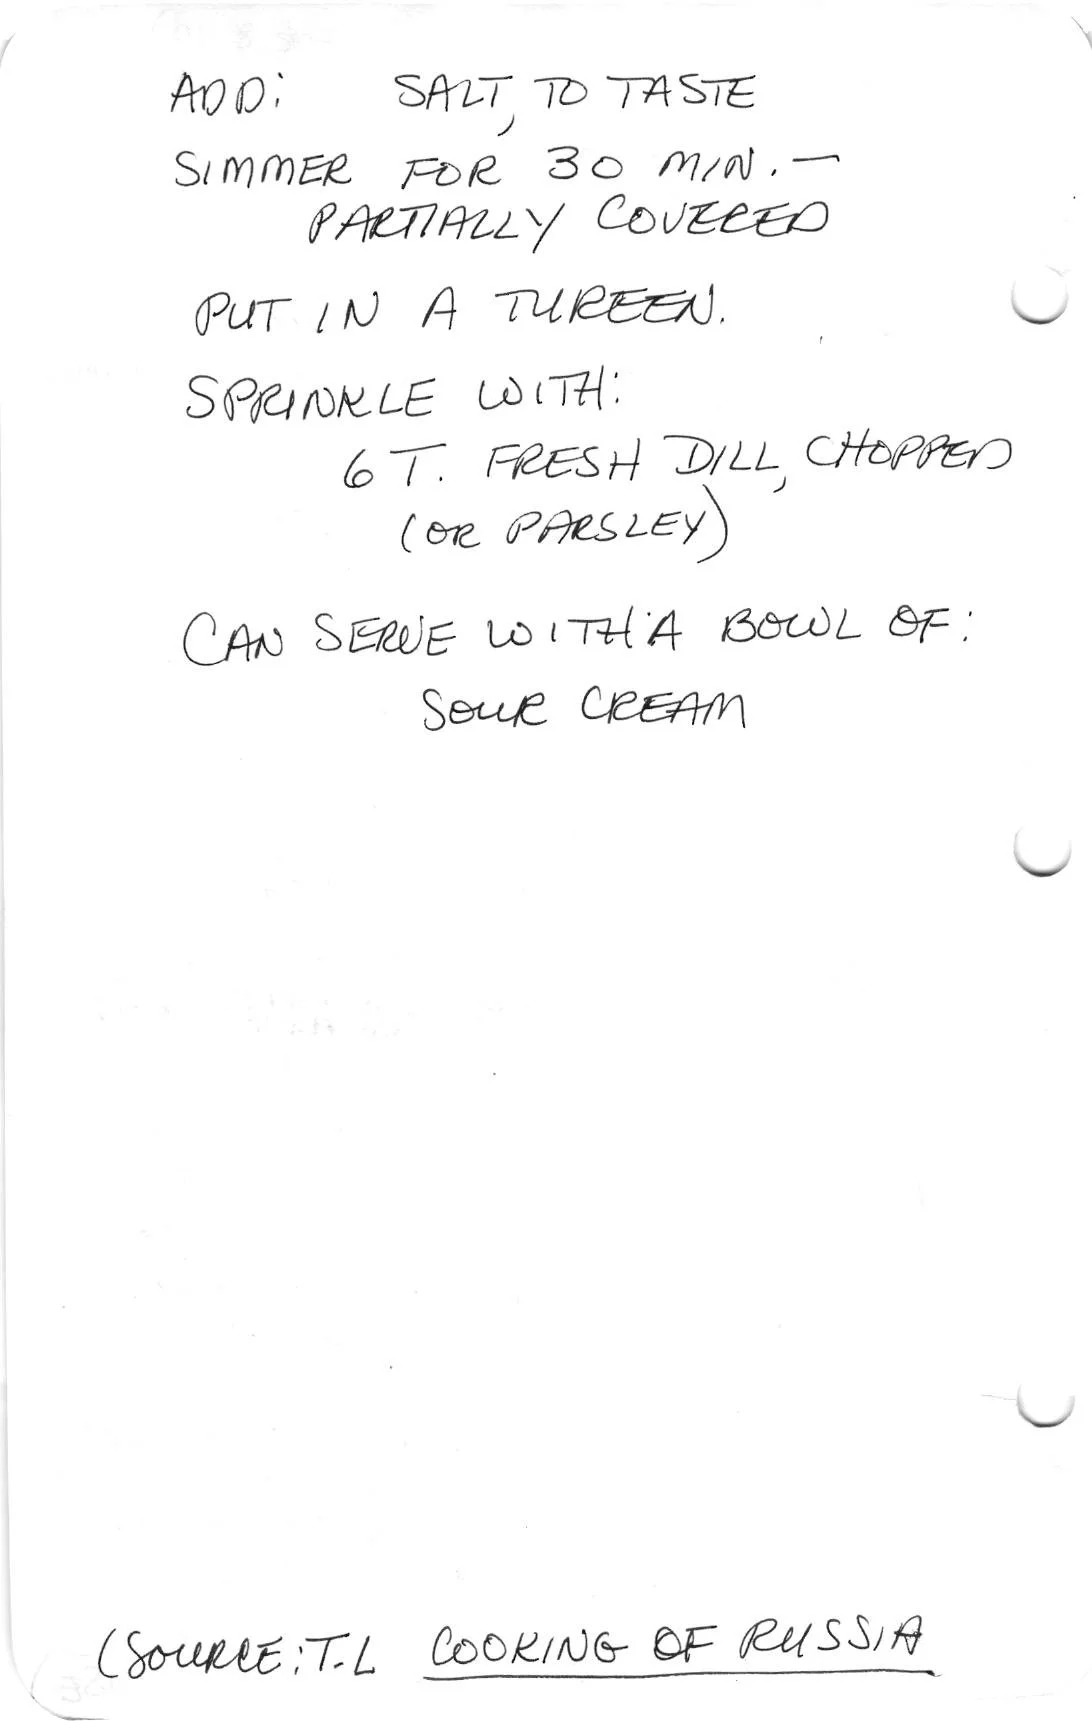 ADD: SALT, TO TASTE
SIMMER FOR 30 MIN. —
PARTIALLY COVERED
PUT IN A TUREEN.
SPRINKLE WITH:
6 T. FRESH DILL, CHOPPED
(OR PARSLEY)
CAN SERVE WITH A BOWL OF:
SOUR CREAM
(SOURCE: T-L COOKING OF RUSSIA